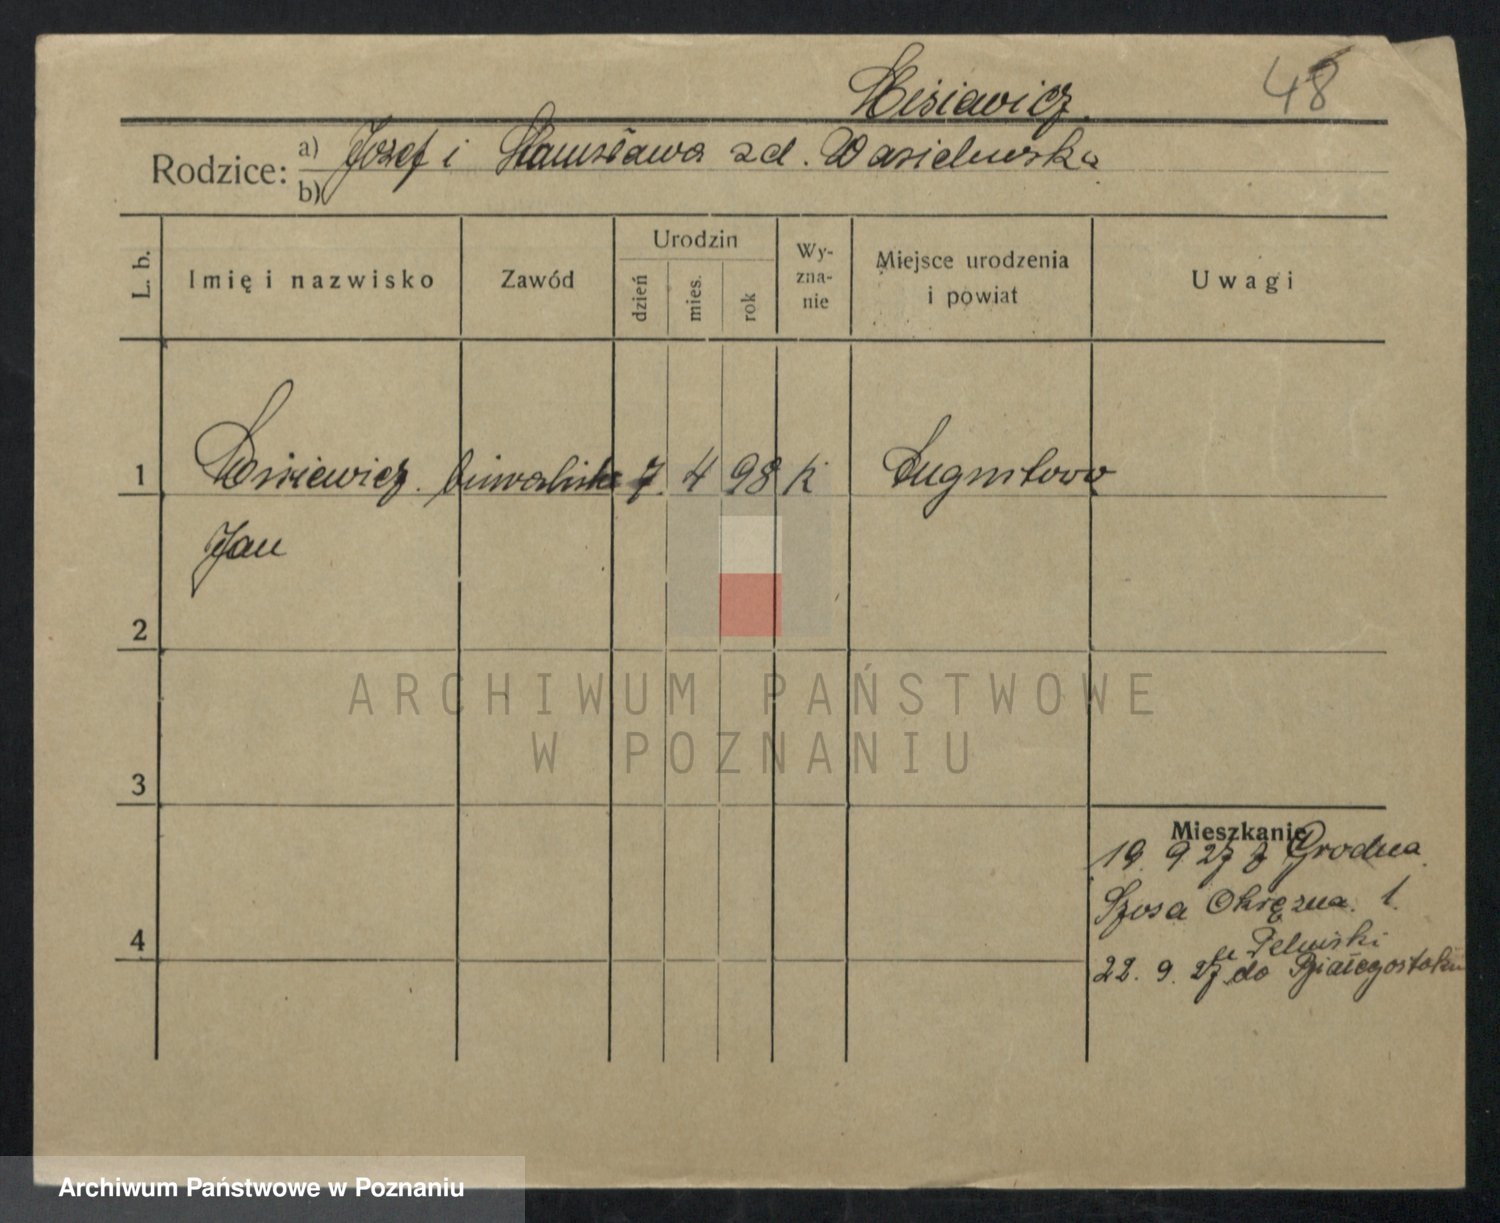 48
Rodzice: a) Józef i Stanisława zd. Wasielewska
b)
L. b.
Imię i nazwisko
Zawód
Urodzin
dzień
mies.
rok
Wy-
zna-
nie
Miejsce urodzenia
i powiat
Uwagi
1
7. 4 98 k
Jan
2
ARCHIWUM PAŃSTWOWE
W POZNANIU
3
Mieszkanie
19. 9 27 z Grodna.
Szosa Okrężna. 1.
4
22. 9. 27. do Białegostoku
Archiwum Państwowe w Poznaniu